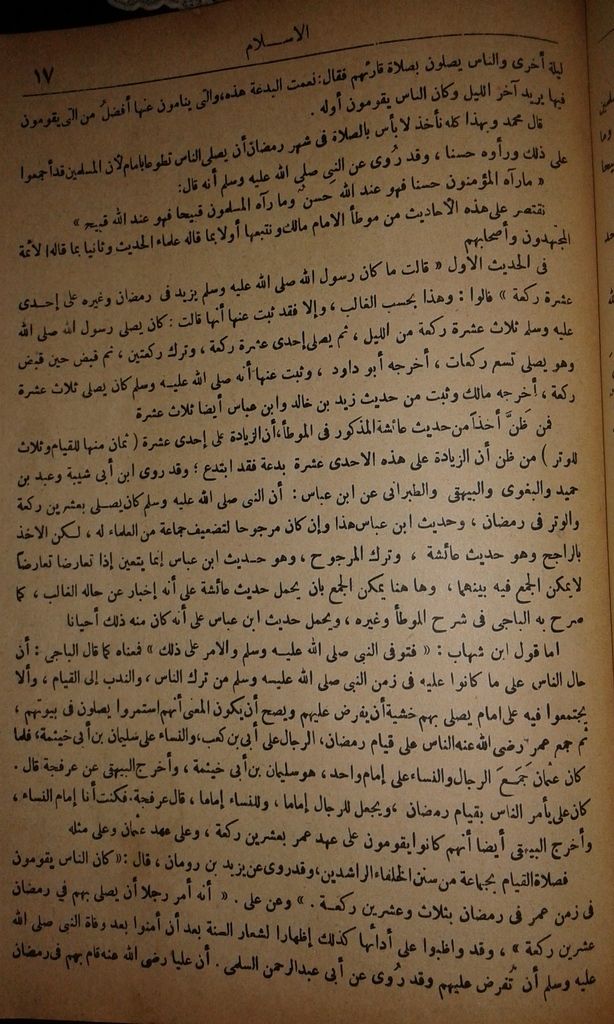 الاسلام
١٧
ليلة أخرى والناس يصلون بصلاة قارئهم فقال: نعمت البدعة هذه، والتى ينامون عنها أفضل من التى يقومون
فيها يريد آخر الليل وكان الناس يقومون أوله .
قال محمد وبهذا كله نأخذ لا بأس بالصلاة فى شهر رمضان أن يصلى الناس تطوعا بامام لأن المسلمين قد أجمعوا
على ذلك ورأوه حسنا ، وقد رُوى عن النبى صلى الله عليه وسلم أنه قال:
« مارآه المؤمنون حسنا فهو عند الله حَسنٌ وما رآه المسلمون قبيحا فهو عند الله قبيح »
نقتصر على هذه الأحاديث من موطأ الامام مالك ونتبعها أولا بما قاله علماء الحديث وثانيا بما قاله الأئمة
المجتهدون وأصحابهم
فى الحديث الأول « قالت ما كان رسول الله صلى الله عليه وسلم يزيد فى رمضان وغيره على إحدى
عشرة ركعة » قالوا : وهذا بحسب الغالب ، وإلا فقد ثبت عنها أنها قالت : كان يصلى رسول الله صلى الله
عليه وسلم ثلاث عشرة ركعة من الليل ، ثم يصلى إحدى عشرة ركعة ، وترك ركعتين ، ثم قبض حين قبض
وهو يصلى تسع ركعات ، أخرجه أبو داود ، وثبت عنها: أنه صلى الله عليه وسلم كان يصلى ثلاث عشرة
ركعة ، أخرجه مالك وثبت من حديث زيد بن خالد وابن عباس أيضا ثلاث عشرة
فمن ظَنَّ أخذاً من حديث عائشة المذكور فى الموطأ، أن الزيادة على إحدى عشرة ( ثمان منها للقيام وثلاث
للوتر ) من ظن أن الزيادة على هذه الاحدى عشرة بدعة فقد ابتدع ؛ وقد روى ابن أبى شيبة وعبد بن
حميد والبغوى والبيهقى والطبرانى عن ابن عباس : أن النبى صلى الله عليه وسلم كان يصلى بعشرين ركعة
والوتر فى رمضان ، وحديث ابن عباس هذا وإن كان مرجوحا لتضعيف جماعة من العلماء له ، لكن الاخذ
بالراجح وهو حديث عائشة ، وترك المرجوح ، وهو حديث ابن عباس إنما يتعين إذا تعارضا تعارضاً
لايمكن الجمع فيه بينهما ، وها هنا يمكن الجمع بان يحمل حديث عائشة على أنه إخبار عن حاله الغالب ، كما
صرح به الباجى فى شرح الموطأ وغيره ، ويحمل حديث ابن عباس على أنه كان منه ذلك أحيانا
اما قول ابن شهاب : « فتوفى النبى صلى الله عليه وسلم والامر على ذلك » فمعناه كما قال الباجى : أن
حال الناس على ما كانوا عليه فى زمن النبى صلى الله عليه وسلم من ترك الناس ، والندب إلى القيام ، وألا
يجتمعوا فيه على امام يصلى بهم خشية أن يفرض عليهم ويصح أن يكون المعنى أنهم استمروا يصلون فى بيوتهم ،
ثم جمع عمر رضى الله عنه الناس على قيام رمضان، الرجال على أبى بن كعب، والنساء على سليمان بن أبى خيثمة، فلما
كان عثمان جَمَعَ الرجال والنساء على إمام واحد ، هو سليمان بن أبى خيثمة ، وأخرج البيهقى عن عرفجة قال .
كان على يأمر الناس بقيام رمضان ، ويجعل للرجال إماما ، وللنساء إماما ، قال عرفجة، فكنت أنا إمام النساء ،
وأخرج البيهقى أيضا أنهم كانوا يقومون على عهد عمر بعشرين ركعة ، وعلى عهد عثمان وعلى مثله
فصلاة القيام بجماعة من سنن الخلفاء الراشدين، وقد روى عن يزيد بن رومان ، قال : « كان الناس يقومون
فى زمن عمر فى رمضان بثلاث وعشرين ركعة . » وعن على . « أنه أمر رجلا أن يصلى بهم في رمضان
عشرين ركعة » ، وقد واظبوا على أدائها كذلك إظهارا لشعار السنة بعد أن أمنوا بعد وفاة النبى صلى الله
عليه وسلم أن تُفرض عليهم وقد رُوى عن أبى عبد الرحمن السلمى . أن عليا رضى الله عنه قام بهم فى رمضان